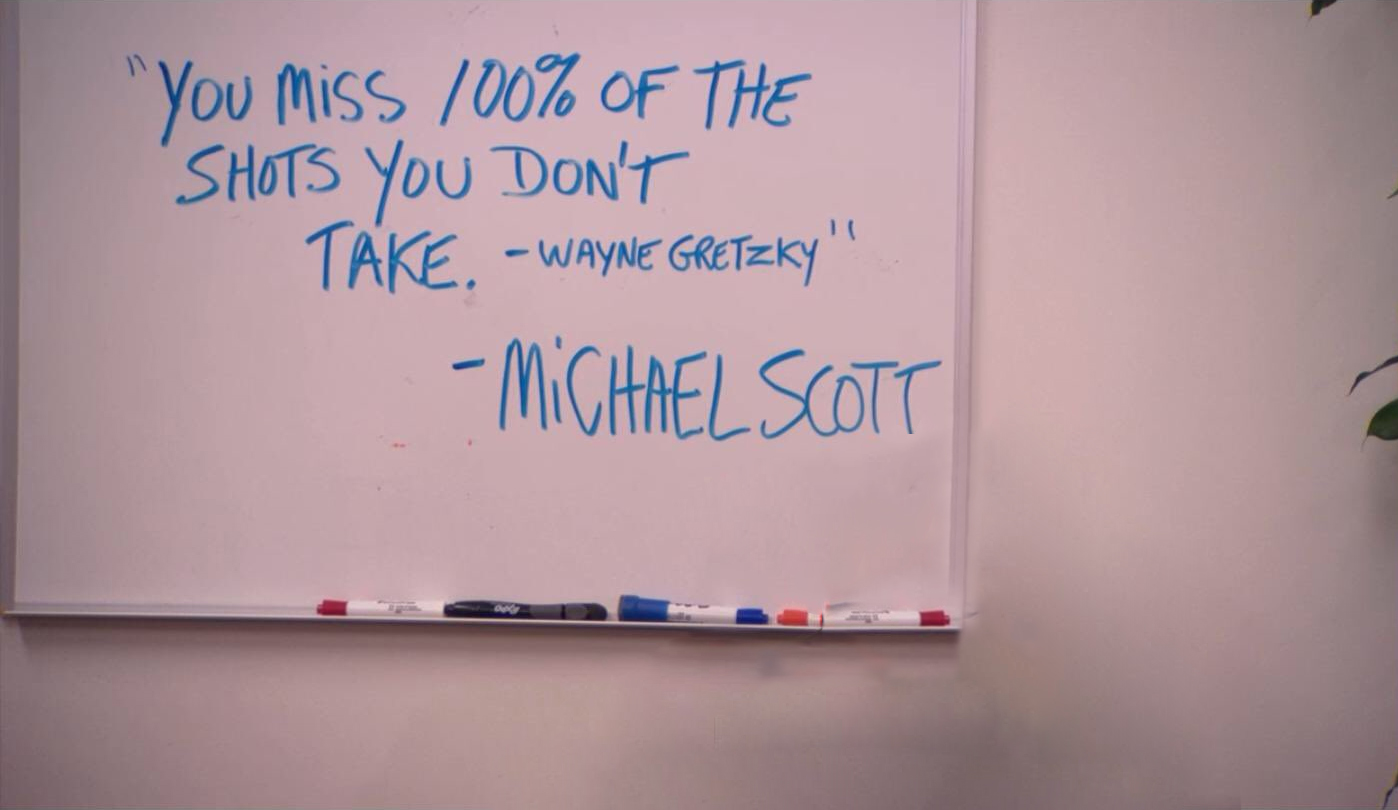 "YOU MiSS 100% OF THE
SHOTS YOU DON'T
TAKE. - WAYNE GRETZKY"
- MiCHAEL SCOTT
expo